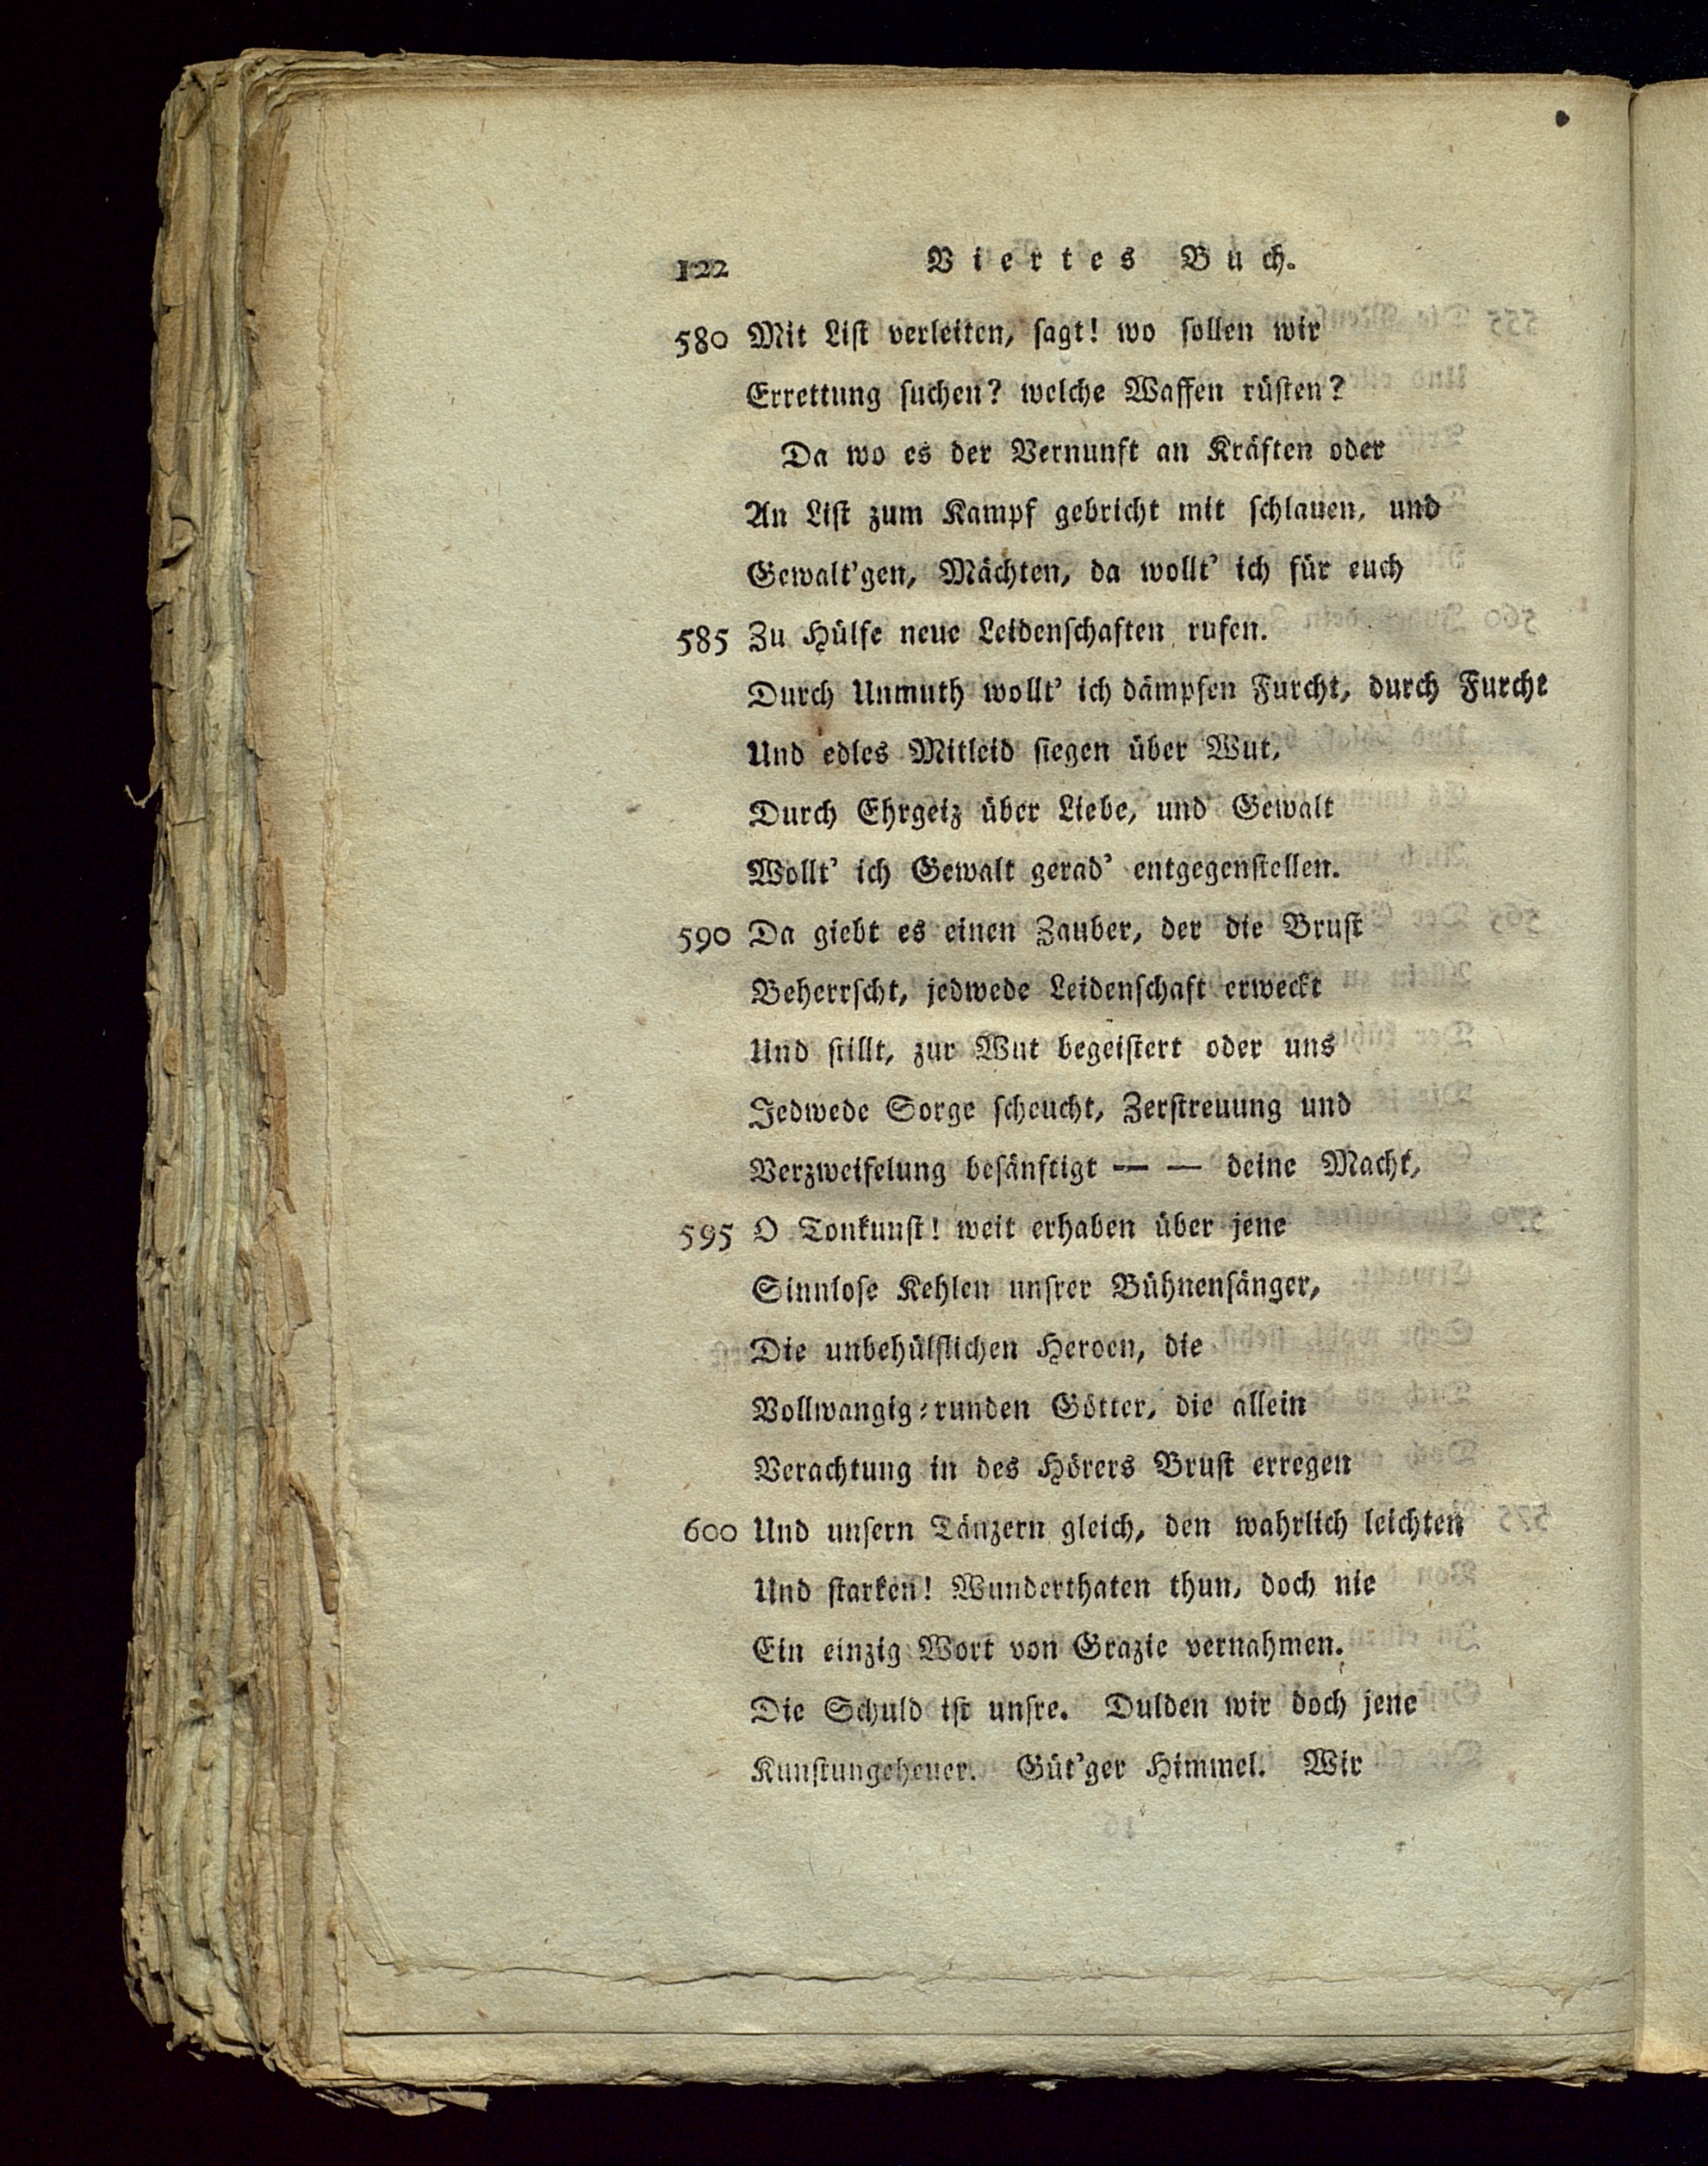 122 Viertes Buch.
580 Mit Liſt verleiten, ſagt! wo ſollen wir
Errettung ſuchen? welche Waffen rüſten?
Da wo es der Vernunft an Kräften oder
An Liſt zum Kampf gebricht mit ſchlauen, und
Gewalt'gen, Mächten, da wollt' ich für euch
585 Zu Hülfe neue Leidenſchaften rufen.
Durch Unmuth wollt' ich dämpfen Furcht, durch Furcht
Und edles Mitleid ſiegen über Wut,
Durch Ehrgeiz über Liebe, und Gewalt
Wollt' ich Gewalt gerad' entgegenſtellen.
590 Da giebt es einen Zauber, der die Bruſt
Beherrſcht, jedwede Leidenſchaft erweckt
Und ſtillt, zur Wut begeiſtert oder uns
Jedwede Sorge ſcheucht, Zerſtreuung und
Verzweifelung beſänftigt — — deine Macht,
595 O Tonkunſt! weit erhaben über jene
Sinnloſe Kehlen unſrer Bühnenſänger,
Die unbehülflichen Heroen, die
Vollwangig-runden Götter, die allein
Verachtung in des Hörers Bruſt erregen
600 Und unſern Tänzern gleich, den wahrlich leichten
Und ſtarken! Wunderthaten thun, doch nie
Ein einzig Wort von Grazie vernahmen.
Die Schuld iſt unſre. Dulden wir doch jene
Kunſtungeheuer. Güt'ger Himmel. Wir